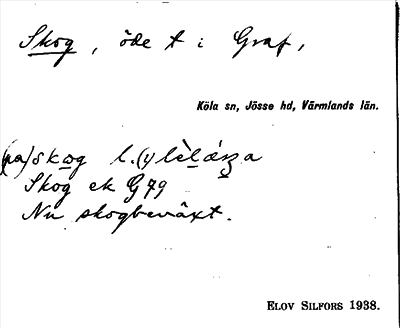 Skog, öde t i Graf,
Köla sn, Jösse hd, Värmlands län.
(pa)skog l.(y
Skog ek G 79
Nu skogbeväxt.
ELOV SILFORS 1938.